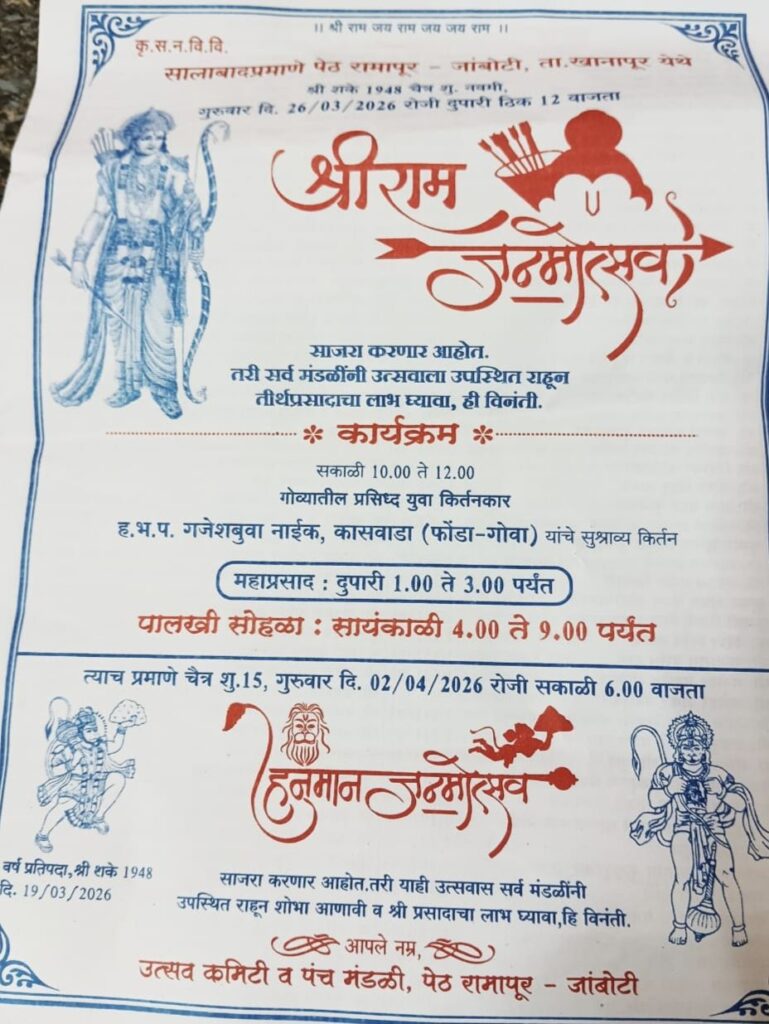 ।। श्री राम जय राम जय जय राम ।।
कृ.स.न.वि.वि.
सालाबादप्रमाणे पेठ रामापूर – जांबोटी, ता.खानापूर येथे
श्री शके 1948 चैत्र शु. नवमी,
गुरुवार दि. 26/03/2026 रोजी दुपारी ठिक 12 वाजता
श्रीराम
जन्मोत्सव
साजरा करणार आहोत.
तरी सर्व मंडळींनी उत्सवाला उपस्थित राहून
तीर्थप्रसादाचा लाभ घ्यावा, ही विनंती.
* कार्यक्रम *
सकाळी 10.00 ते 12.00
गोव्यातील प्रसिध्द युवा किर्तनकार
ह.भ.प. गजेशबुवा नाईक, कासवाडा (फोंडा-गोवा) यांचे सुश्राव्य किर्तन
महाप्रसाद : दुपारी 1.00 ते 3.00 पर्यंत
पालखी सोहळा : सायंकाळी 4.00 ते 9.00 पर्यंत
त्याच प्रमाणे चैत्र शु.15, गुरुवार दि. 02/04/2026 रोजी सकाळी 6.00 वाजता
हनुमान जन्मोत्सव
वर्ष प्रतिपदा,श्री शके 1948
दि. 19/03/2026
साजरा करणार आहोत.तरी याही उत्सवास सर्व मंडळींनी
उपस्थित राहून शोभा आणावी व श्री प्रसादाचा लाभ घ्यावा,हि विनंती.
आपले नम्र,
उत्सव कमिटी व पंच मंडळी, पेठ रामापूर – जांबोटी